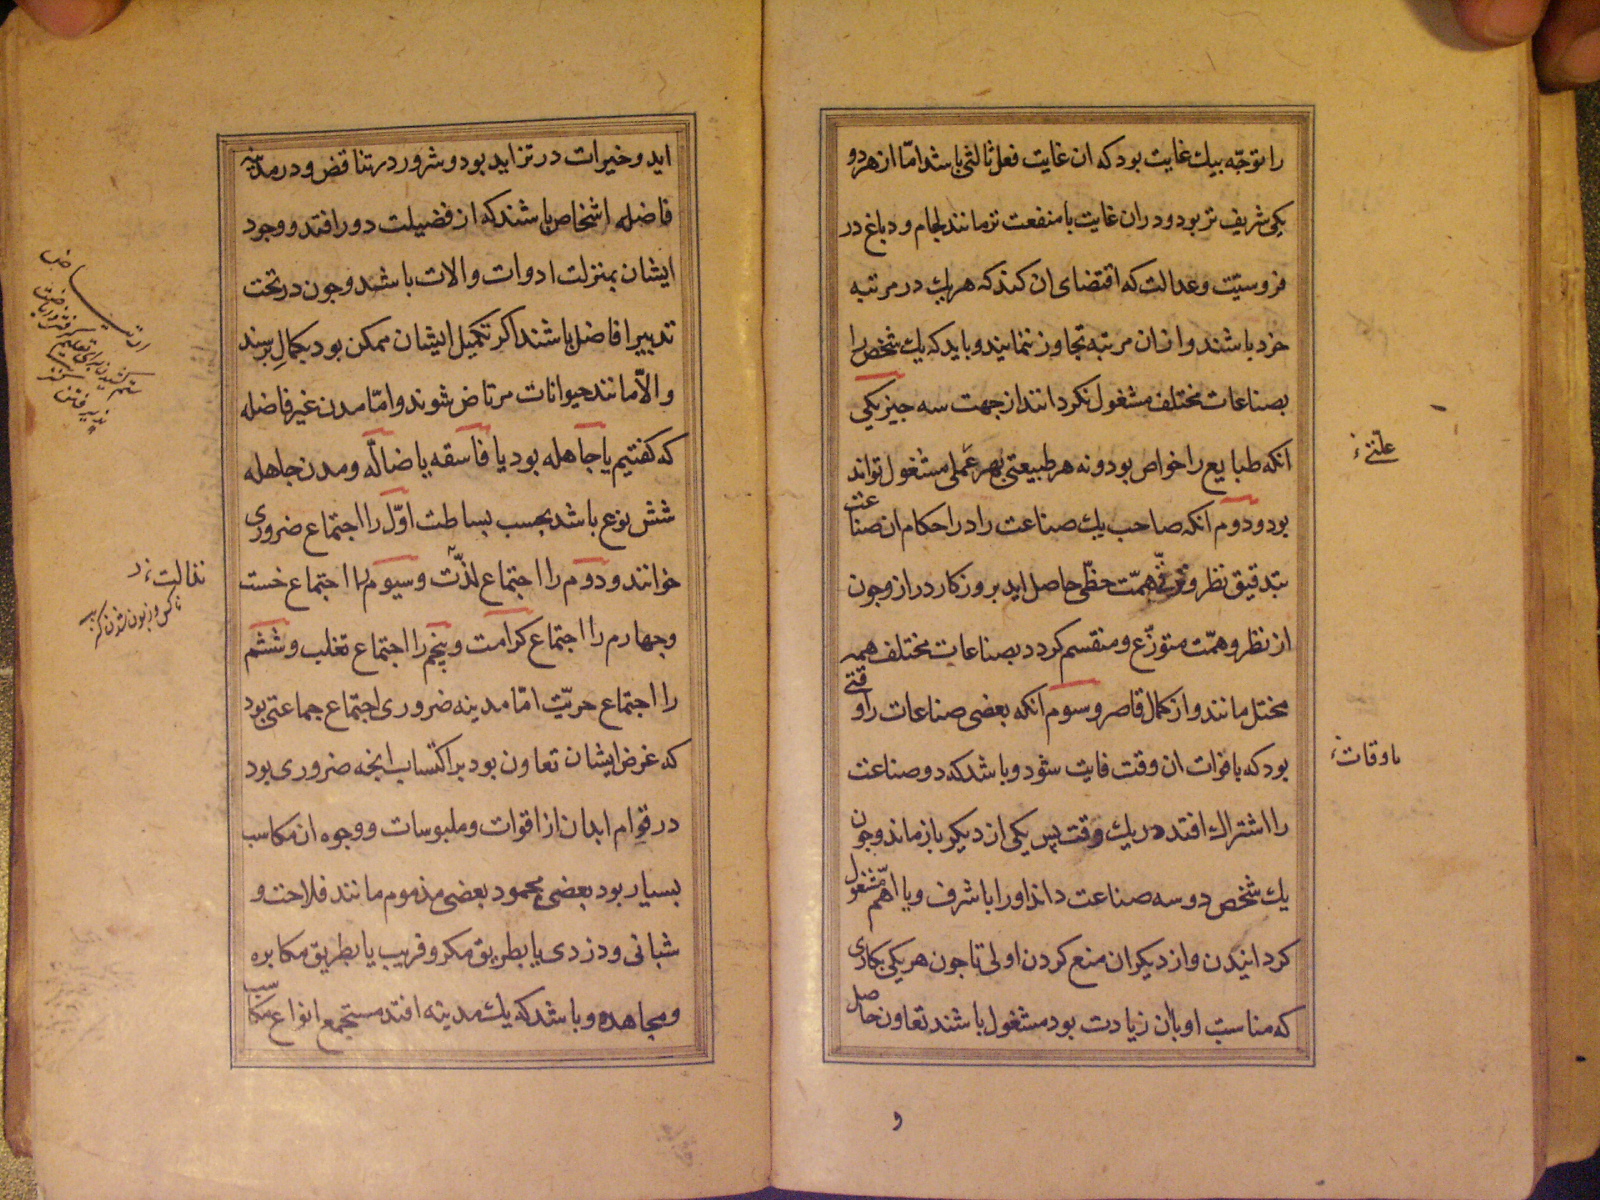 را توجّه بیك غایت بود که ان غایت فعل ثالثی باشد امّا از هر دو
یکی شریف تر بود و دران غایت با منفعت تر مانند لجام و دباغ در
فروسیّت و عدالت که اقتضای ان کند که هریك در مرتبه
خود باشند و از ان مرتبه تجاوز ننمایند و باید که یك شخص را
بصناعات مختلف مشغول نکردانند از جهت سه جیز یکی
انکه طبایع را خواص بود و نه هر طبیعتی بهر عملی مشغول تواند
بود و دوم انکه صاحب یك صناعت را در احکام ان صناعت
بتدقیق نظر و ترقی همّت حظّی حاصل اید بروزکار دراز و جون
از نظر و همّت متوزّع و منقسم کردد بصناعات مختلف همه
مختل مانند و از کمال قاصر و سوم انکه بعضی صناعات را وقتی
بود که با فوات ان وقت فایت شود و باشد که دو صناعت
را اشتراك افتد در یك وقت پس یکی از دیکر باز ماند و جون
یك شخص دو سه صناعت داند او را باشرف و یا اهمّ مشغول
کردانیدن و از دیکران منع کردن اولی تا جون هر یکی بکاری
که مناسبت او بان زیادت بود مشغول باشند تعاون حاصل
علّتی
باوقات
و
اید و خیرات در تزاید بود و شرور در تناقض و در مدینه
فاضله اشخاص باشند که از فضیلت دور افتد و وجود
ایشان بمنزلت ادوات و الات باشد و جون در تحت
تدبیر افاضل باشند اکر تکمیل ایشان ممکن بود بکمال برسند
و الاّ مانند حیوانات مرتاض شوند و امّا مدن غیر فاضله
که کفتیم یا جاهله بود یا فاسقه یا ضالّه و مدن جاهله
شش نوع باشد بحسب بساطت اوّل را اجتماع ضروری
خوانند و دوم را اجتماع لذّت و سیوم را اجتماع خست
و جهارم را اجتماع کرامت و پنجم را اجتماع تغلب و ششم
را اجتماع حریّت امّا مدینه ضروری اجتماع جماعتی بود
که غرض ایشان تعاون بود بر اکتساب انجه ضروری بود
در قوام ابدان از اقوات و ملبوسات و وجوه ان مکاسب
بسیار بود بعضی محمود بعضی مذموم مانند فلاحت و
شبانی و دزدی یا بطریق مکر و فریب یا بطریق مکابره
و مجاهده و باشد که یك مدینه افتد مستجمع انواع مکاسب
نذالت